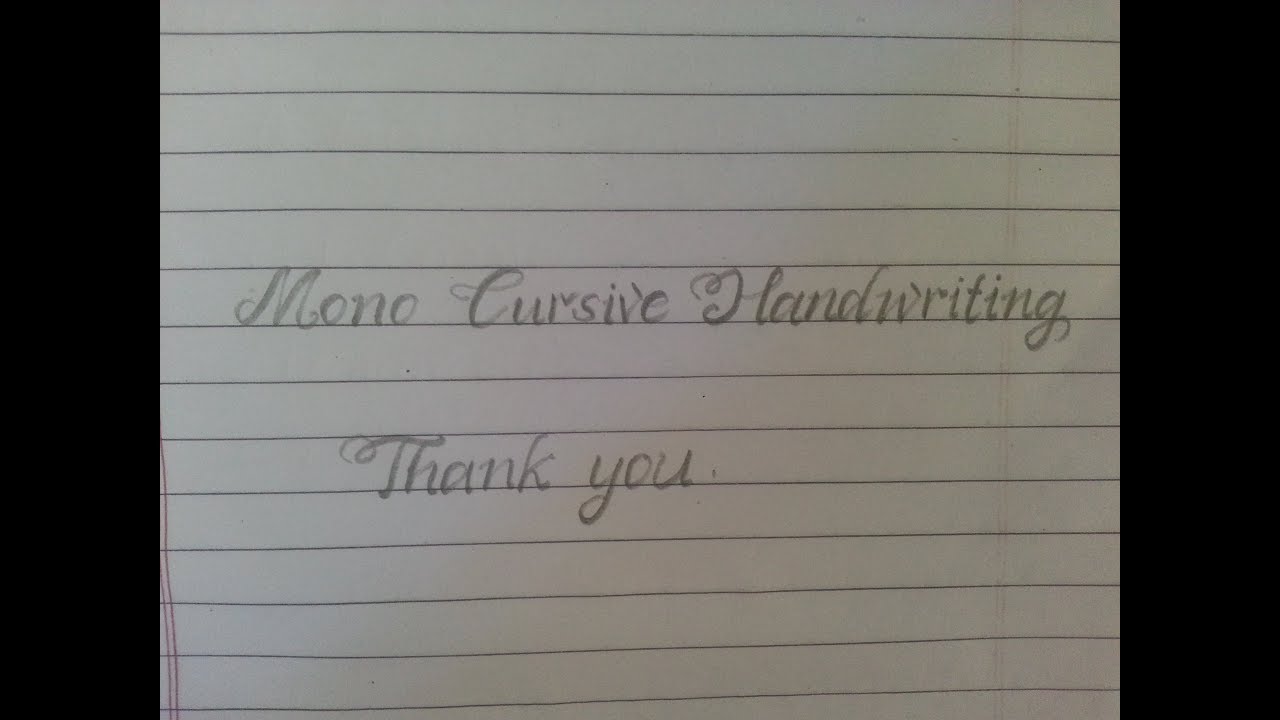 Mono Cursive Handwriting
Thank you.